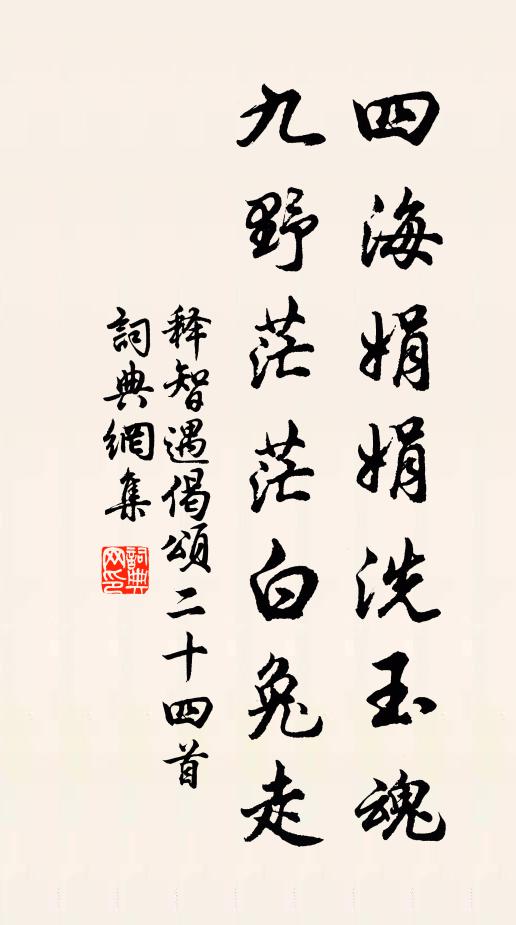 四海娟娟洗玉魂
九野茫茫白兔走
释智遇偈頌二十四首
詞典網集
詞典
网印